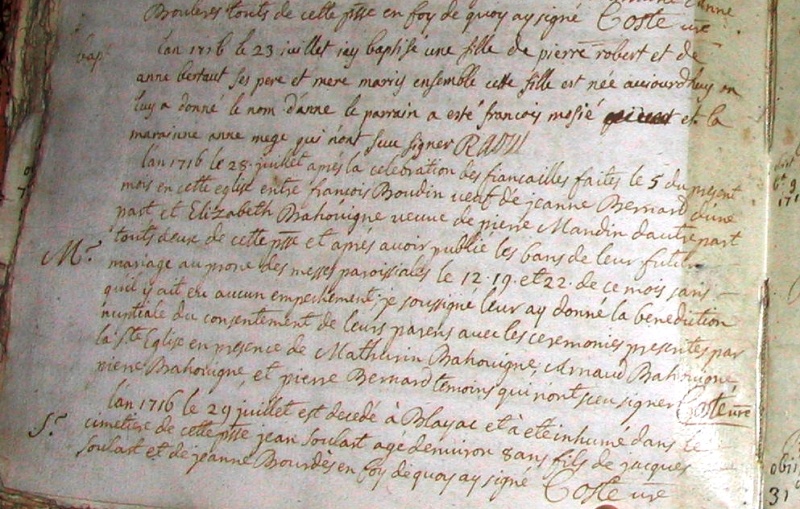 Bouleres touts de cette psse en foy de quoy ay signé Coste vre
bap.e
lan 1716 le 23 juillet iay baptise une fille de pierre robert et de
anne bertaut ses pere et mere mariés ensemble cette fille est née aujourdhuy on
luy a donné le nom danne le parrain a esté francois mosié et la
marainne anne mege qui n'ont sceu signer
lan 1716 le 28 juillet aprés la celebration des fiancailles faites le 5 du present
mois en cette eglise entre francois Boudin veuf de jeanne Bernard d'une
part et Elizabeth Bahouigne veuve de pierre Mandin dautre part
touts deux de cette psse et aprés avoir publie les bans de leur futur
M.e
mariage au prone des messes paroissiales le 12. 19. et 22. de ce mois sans
quil y ait eu aucun empechement, je soussigne leur ay donné la benediction
nuptiale du consentement de leurs parens avec les ceremonies prescrites par
la Ste Eglise en presence de Mathurin Bahouigne, Arnaud Bahouigne,
pierre Bahouigne, et pierre Bernard temoins qui n'ont sceu signer Coste vre
lan 1716 le 29 juillet est decedé à Blaysac et à eté inhumé dans le
S.e
cimetiere de cette psse jean Soulast age denviron 8 ans fils de jacques
Soulast et de jeanne Bourdés en foy de quoy ay signé Coste vre
obiit
31